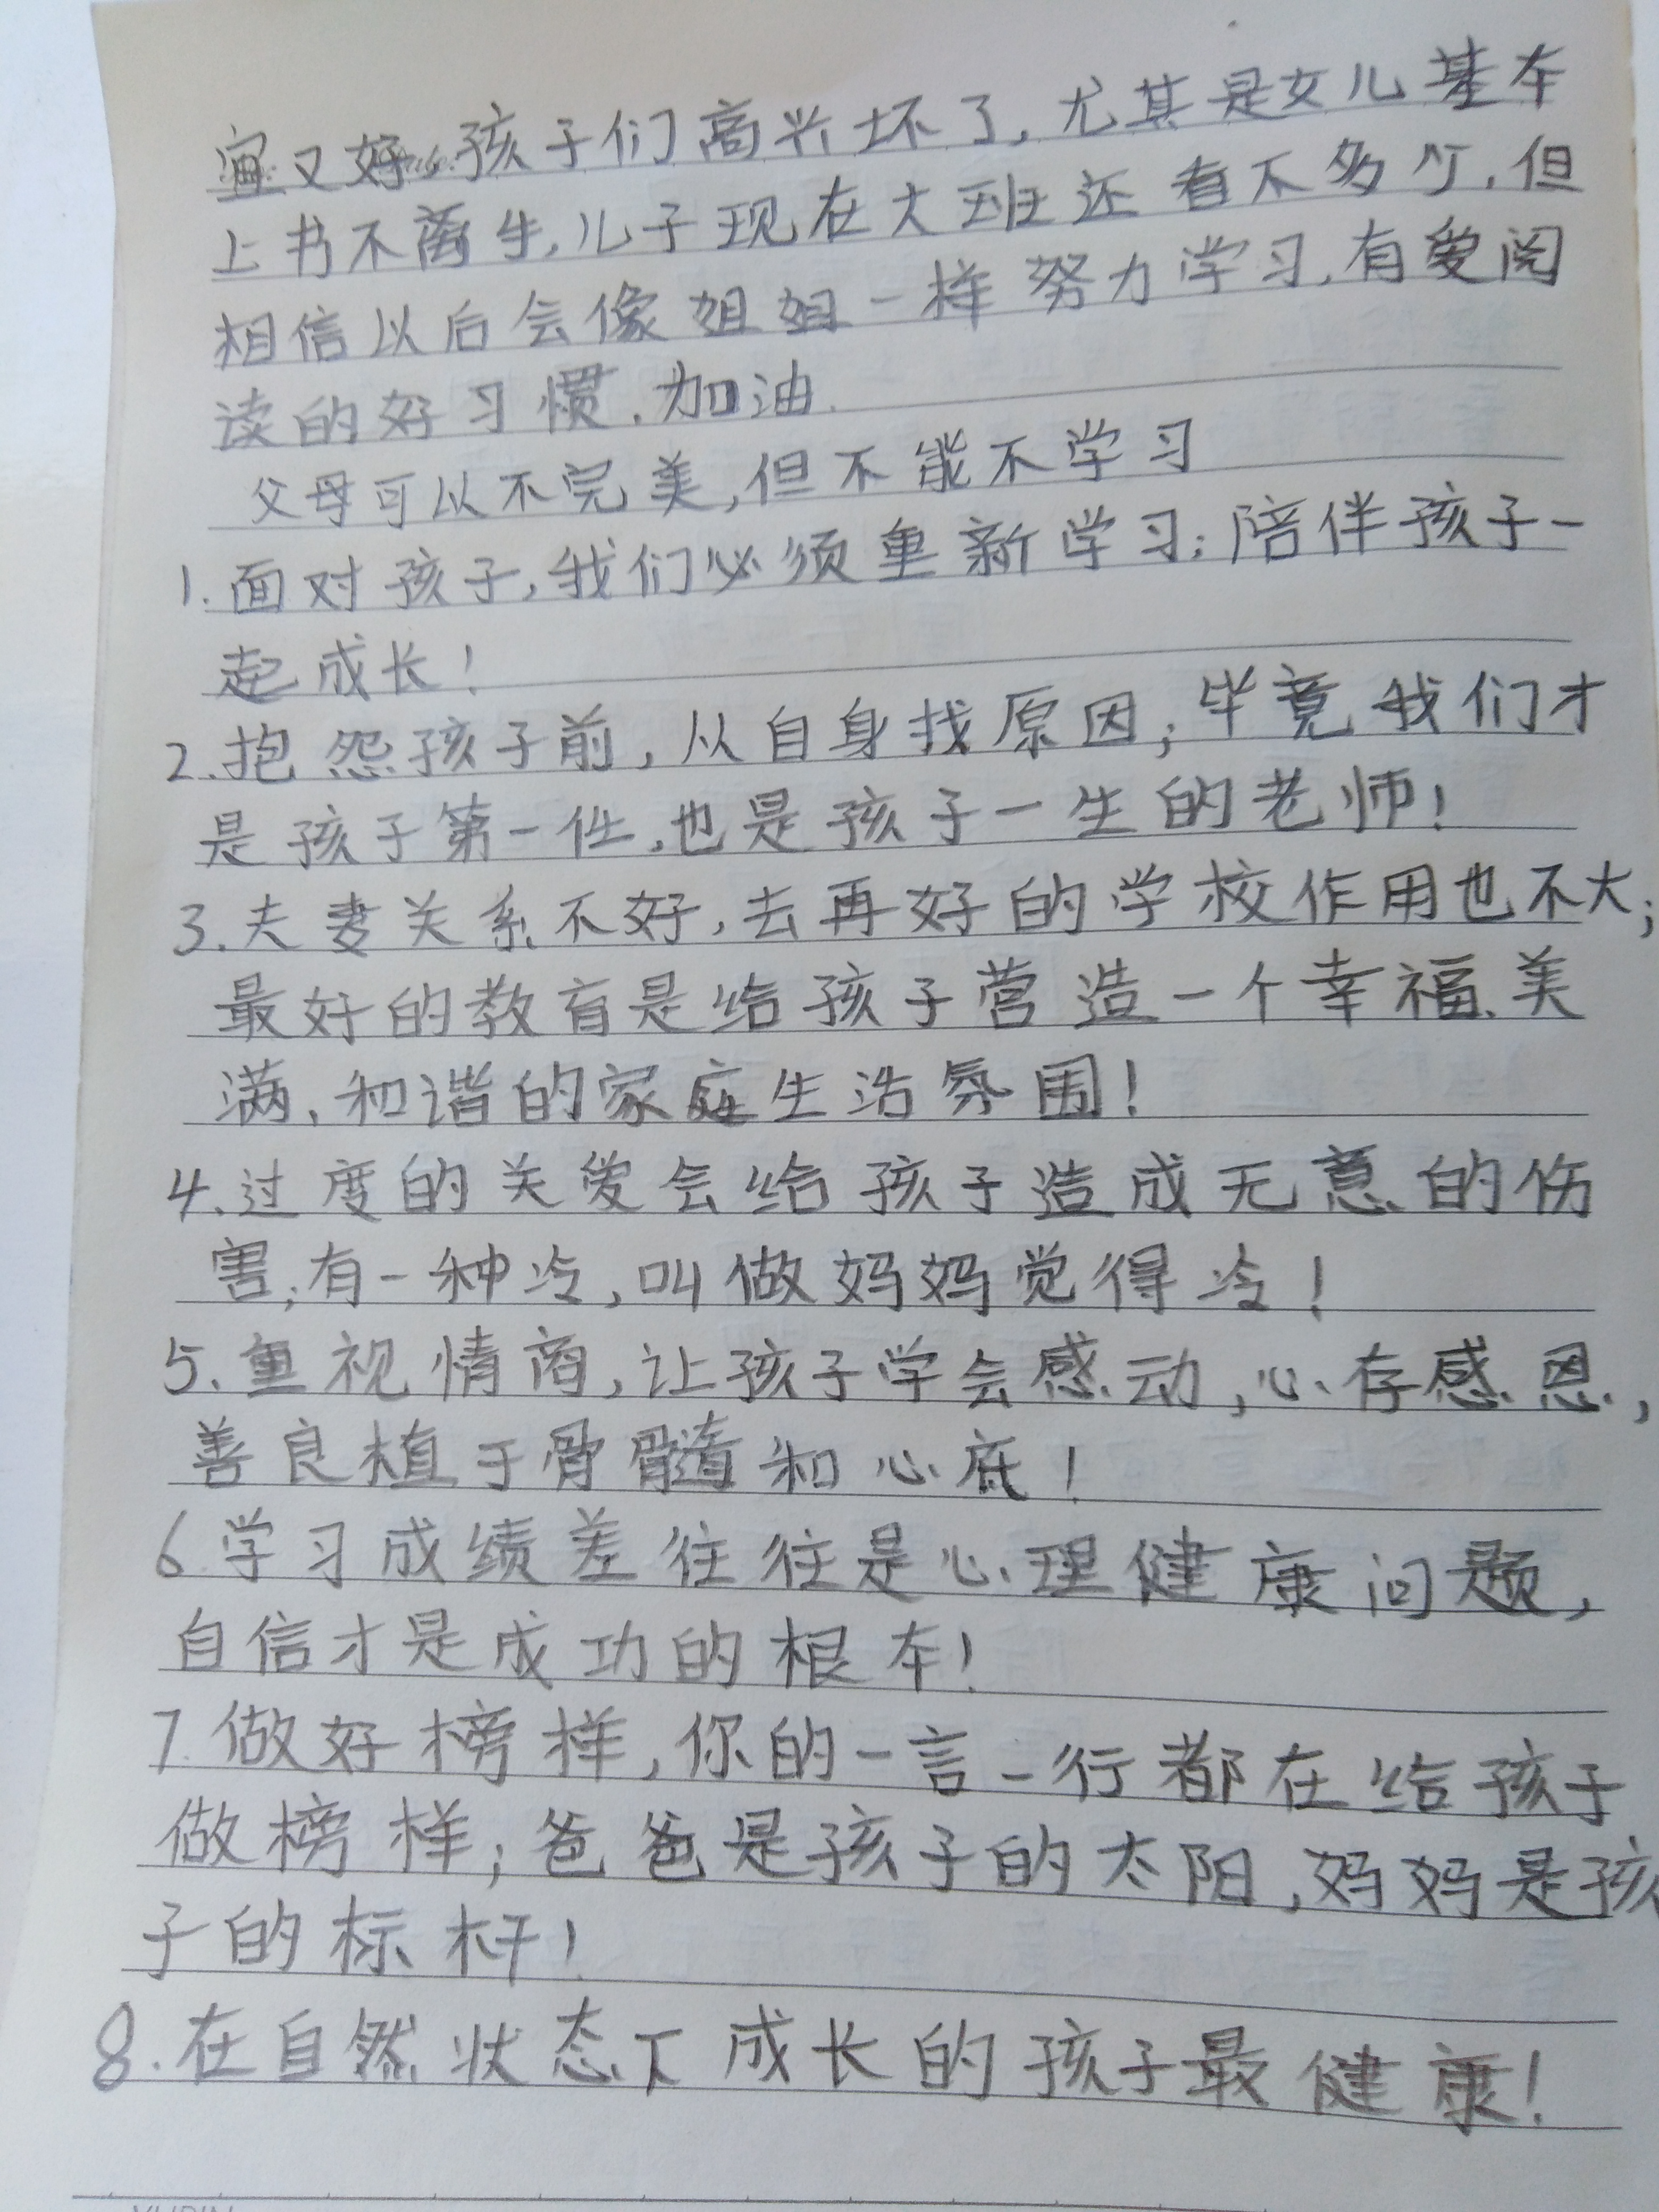 宜又好 孩子们高兴坏了,尤其是女儿基本
上书不离手,儿子现在大班还看不多懂,但
相信以后会像姐姐一样努力学习,有爱阅
读的好习惯.加油.
父母可以不完美,但不能不学习
1.面对孩子,我们必须重新学习;陪伴孩子一
起成长!
2.抱怨孩子前,从自身找原因;毕竟我们才
是孩子第一任,也是孩子一生的老师!
3.夫妻关系不好,去再好的学校作用也不大;
最好的教育是给孩子营造一个幸福、美
满、和谐的家庭生活氛围!
4.过度的关爱会给孩子造成无意的伤
害;有一种冷,叫做妈妈觉得冷!
5.重视情商,让孩子学会感动,心存感恩,
善良植于骨髓和心底!
6.学习成绩差往往是心理健康问题,
自信才是成功的根本!
7.做好榜样,你的一言一行都在给孩子
做榜样;爸爸是孩子的太阳,妈妈是孩
子的标杆!
8.在自然状态下成长的孩子最健康!